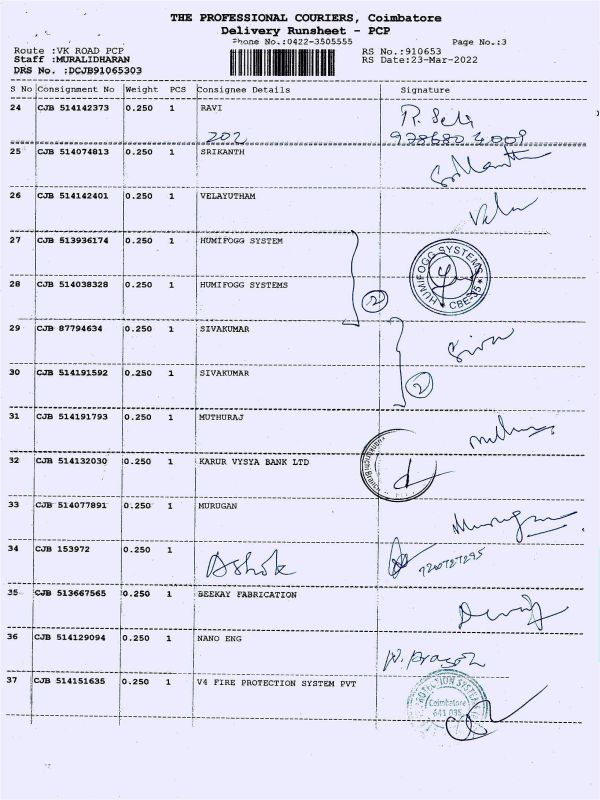 THE PROFESSIONAL COURIERS, Coimbatore
Delivery Runsheet - PCP
Phone No.:0422-3505555 Page No.:3
Route :VK ROAD PCP RS No.:910653
Staff :MURALIDHARAN RS Date:23-Mar-2022
DRS No. :DCJB91065303
S No Consignment No Weight PCS Consignee Details Signature
24 CJB 514142373 0.250 1 RAVI
202
25 CJB 514074813 0.250 1 SRIKANTH
26 CJB 514142401 0.250 1 VELAYUTHAM
27 CJB 513936174 0.250 1 HUMIFOGG SYSTEM
HUMIFOGG SYSTEMS
CBE-35
28 CJB 514038328 0.250 1 HUMIFOGG SYSTEMS
2
29 CJB 87794634 0.250 1 SIVAKUMAR Siva
30 CJB 514191592 0.250 1 SIVAKUMAR
2
31 CJB 514191793 0.250 1 MUTHURAJ
32 CJB 514132030 0.250 1 KARUR VYSYA BANK LTD
33 CJB 514077891 0.250 1 MURUGAN Murugan
34 CJB 153972 0.250 1 Ashok 7200727295
35 CJB 513667565 0.250 1 BEEKAY FABRICATION
36 CJB 514129094 0.250 1 NANO ENG
37 CJB 514151635 0.250 1 V4 FIRE PROTECTION SYSTEM PVT
Coimbatore
641 035